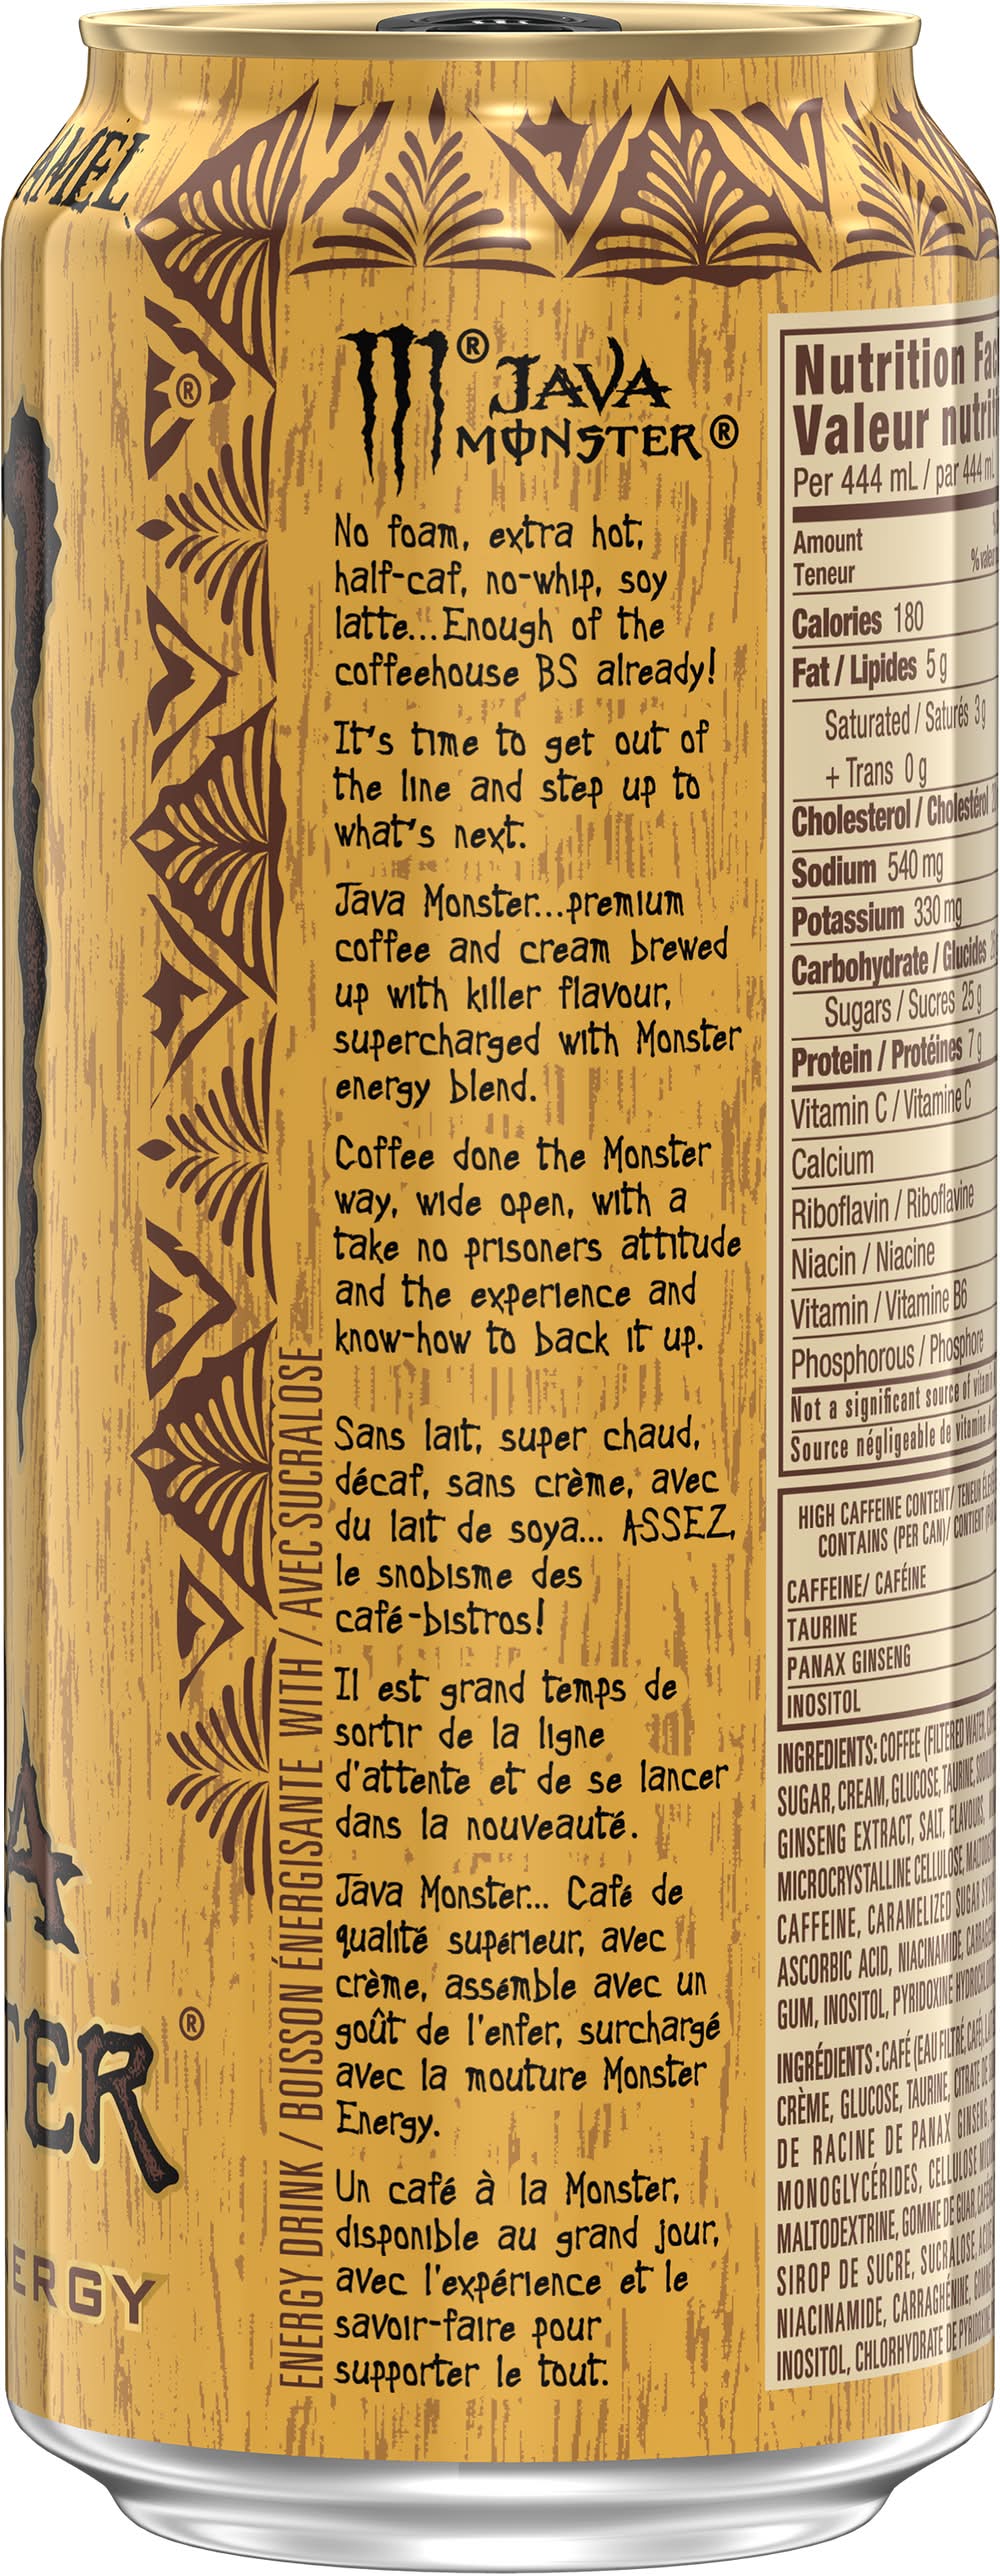 ®
®
JAVA
MONSTER®
No foam, extra hot,
half-caf, no-whip, soy
latte...Enough of the
coffeehouse BS already!
It's time to get out of
the line and step up to
what's next.
Java Monster...premium
coffee and cream brewed
up with killer flavour,
supercharged with Monster
energy blend.
Coffee done the Monster
way, wide open, with a
take no prisoners attitude
and the experience and
know-how to back it up.
Sans lait, super chaud,
décaf, sans crème, avec
du lait de soya... ASSEZ,
le snobisme des
café-bistros!
Il est grand temps de
sortir de la ligne
d'attente et de se lancer
dans la nouveauté.
Java Monster... Café de
qualité supérieur, avec
crème, assemble avec un
goût de l'enfer, surchargé
avec la mouture Monster
Energy.
Un café à la Monster,
disponible au grand jour,
avec l'expérience et le
savoir-faire pour
supporter le tout.
ENERGY DRINK / BOISSON ÉNERGISANTE WITH / AVEC SUCRALOSE
®
Nutrition
Valeur
Per 444 mL / par 444 mL
Amount
Teneur
Calories 180
Fat / Lipides 5 g
Saturated / Saturés 3 g
+ Trans 0 g
Cholesterol / Cholestérol
Sodium 540 mg
Potassium 330 mg
Carbohydrate / Glucides
Sugars / Sucres 25 g
Protein / Protéines 7 g
Vitamin C / Vitamine C
Calcium
Riboflavin / Riboflavine
Niacin / Niacine
Vitamin / Vitamine B6
Phosphorous / Phosphore
Not a significant source of
Source négligeable de vitamine
HIGH CAFFEINE CONTENT/ TENEUR
CONTAINS (PER CAN)/ CONTIENT
CAFFEINE/ CAFÉINE
TAURINE
PANAX GINSENG
INOSITOL
INGREDIENTS: COFFEE (FILTERED WATER,
SUGAR, CREAM, GLUCOSE, TAURINE,
GINSENG EXTRACT, SALT, FLAVOURS,
MICROCRYSTALLINE CELLULOSE,
CAFFEINE, CARAMELIZED SUGAR
ASCORBIC ACID, NIACINAMIDE,
GUM, INOSITOL, PYRIDOXINE
INGRÉDIENTS : CAFÉ (EAU FILTRÉ, CAFÉ),
CRÈME, GLUCOSE, TAURINE, CITRATE DE
DE RACINE DE PANAX GINSENG,
MONOGLYCÉRIDES, CELLULOSE
MALTODEXTRINE, GOMME DE GUAR,
SIROP DE SUCRE, SUCRALOSE,
NIACINAMIDE, CARRAGHÉNINE,
INOSITOL, CHLORHYDRATE DE